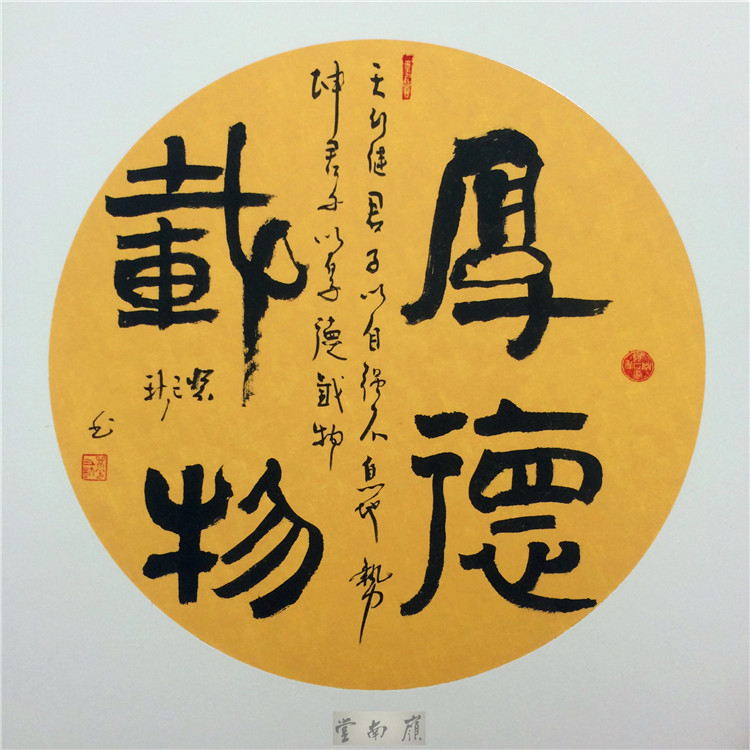 厚德
天行健君子以自强不息地勢
坤君子以厚德載物
載物
癸巳
書
嶺南堂